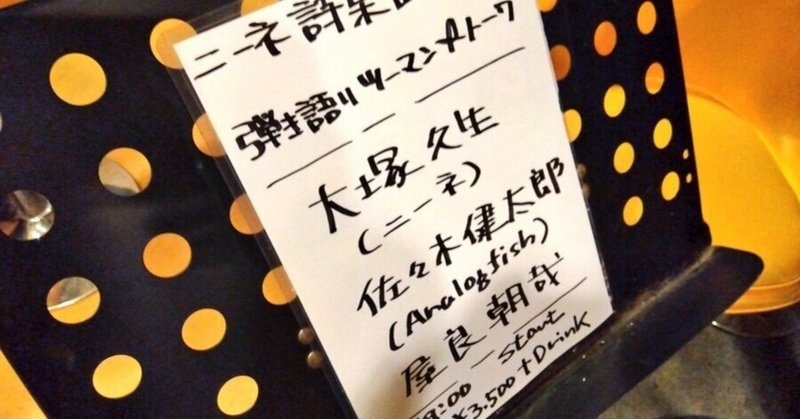 ニーネ 詩集
弾き語りツーマン+トーク
大塚久生
(ニーネ)
佐々木健太郎
(Analogfish)
屋良朝哉
:00 start
¥3.500+Drink